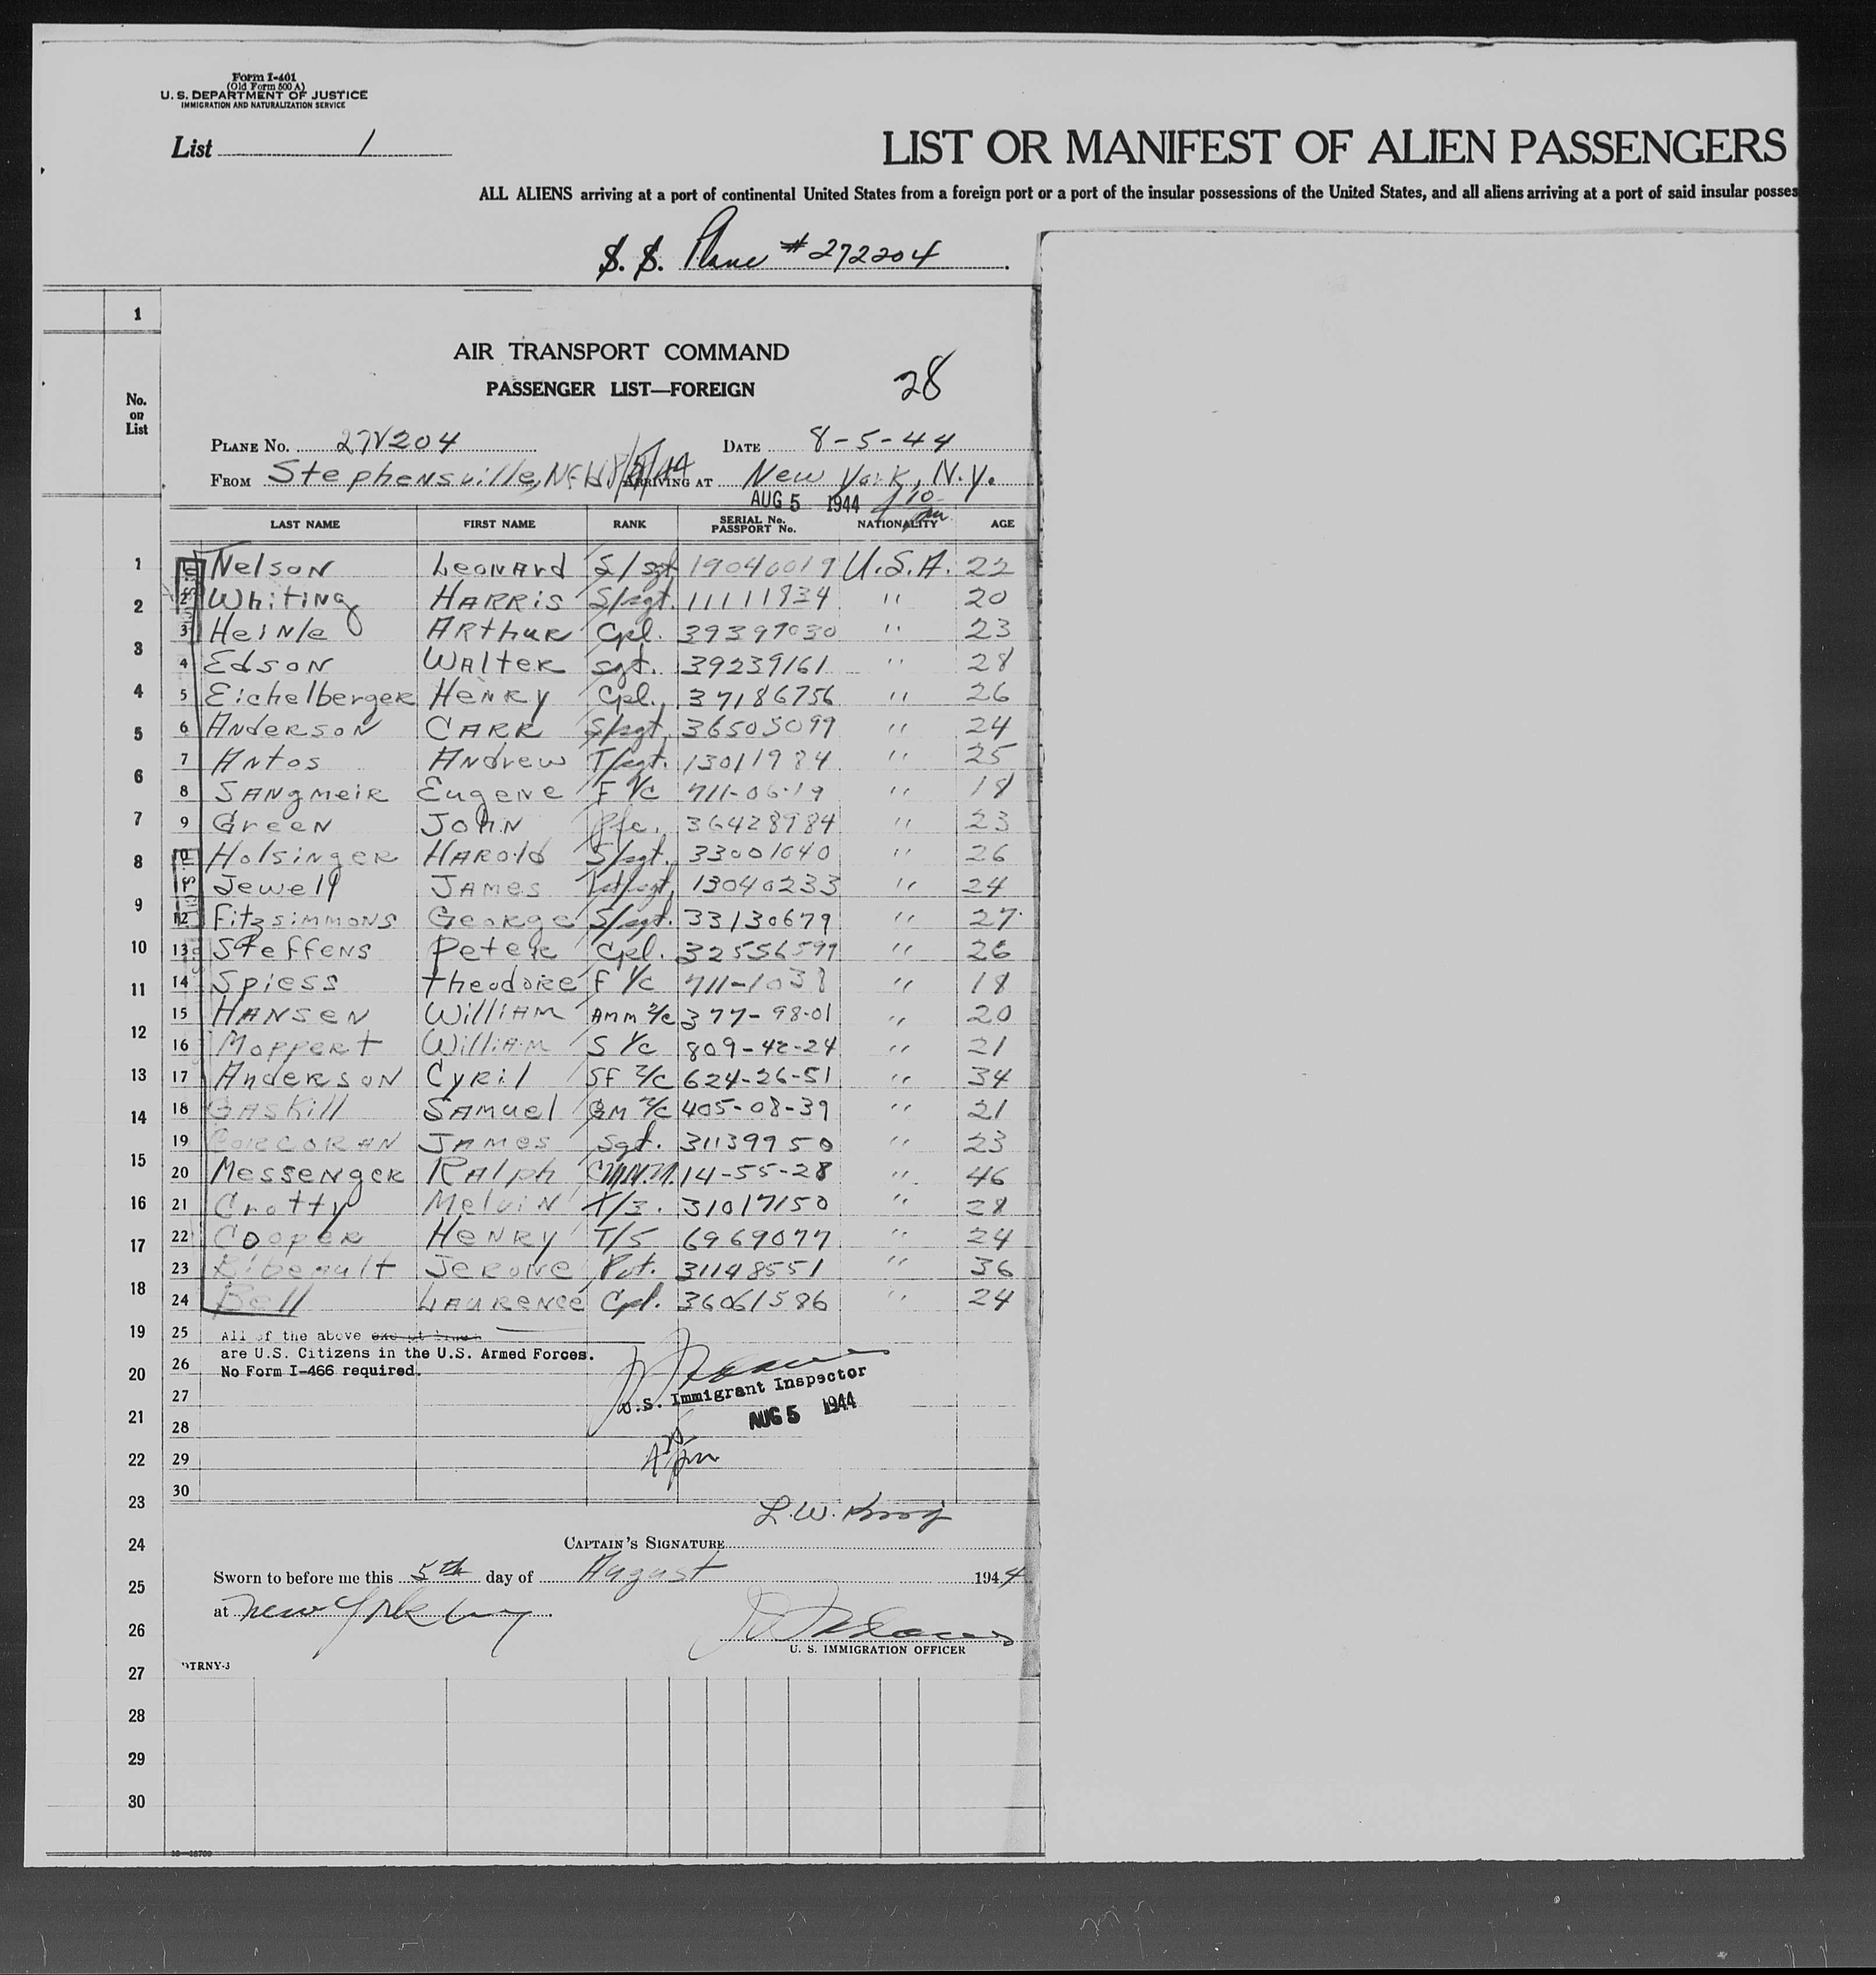 Form I-401
(Old Form 500 A)
U. S. DEPARTMENT OF JUSTICE
IMMIGRATION AND NATURALIZATION SERVICE
List 1
LIST OR MANIFEST OF ALIEN PASSENGERS
ALL ALIENS arriving at a port of continental United States from a foreign port or a port of the insular possessions of the United States, and all aliens arriving at a port of said insular posses
S. S. Plane # 272204
1
No. on List
AIR TRANSPORT COMMAND
PASSENGER LIST—FOREIGN
28
PLANE No. 272204 DATE 8-5-44
FROM Stephensville, Nfld ARRIVING AT New York, N.Y.
AUG 5 1944
LAST NAME FIRST NAME RANK SERIAL No. PASSPORT No. NATIONALITY AGE
1 Nelson Leonard S/sgt 19040019 U.S.A. 22
2 Whiting HARRiS S/sgt. 11111934 " 20
3 HeiNle ARthuR Cpl. 39397030 " 23
4 EdsoN WAlteR sgt. 39239161 " 28
5 EichelbergeR HeNRy Cpl. 37186756 " 26
6 ANdeRsoN CARR S/sgt. 36505099 " 24
7 ANtos ANdrew T/sgt. 13011984 " 25
8 SANgmeiR EugeNe F 1/c 711-06-19 " 18
9 GreeN JohN Pfc. 36428984 " 23
10 HolsiNgeR HARold S/sgt. 33001040 " 26
11 Jewell JAMes 1st/sgt. 13040233 " 24
12 FitzsimmoNs GeoRge S/sgt. 33130679 " 27
13 SteffeNs PeteR Cpl. 32556599 " 26
14 Spiess theodoRe F 1/c 711-1038 " 18
15 HANseN WilliAM AMM 2/c 377-98-01 " 20
16 MoppeRt WilliAM S 1/c 809-42-24 " 21
17 ANdeRsoN CyRil SF 2/c 624-26-51 " 34
18 GASKill SAMuel GM 2/c 405-08-39 " 21
19 CORCORAN JAMes Sgt. 31139950 " 23
20 MesseNgeR RAlph C.M.M. 14-55-28 " 46
21 Crotty MelviN T/3. 31017150 " 28
22 CoopeR HeNRy T/5 6969077 " 24
23 Ribeault JeRoNe Pvt. 31148551 " 36
24 Bell LAuReNce Cpl. 36061586 " 24
25 All of the above
are U.S. Citizens in the U.S. Armed Forces.
26 No Form I-466 required.
27
28
29
30
U.S. Immigrant Inspector
AUG 5 1944
L.W. King
CAPTAIN'S SIGNATURE
Sworn to before me this 5th day of August 1944
at New York
U. S. IMMIGRATION OFFICER
TRNY-3
1
2
3
4
5
6
7
8
9
10
11
12
13
14
15
16
17
18
19
20
21
22
23
24
25
26
27
28
29
30